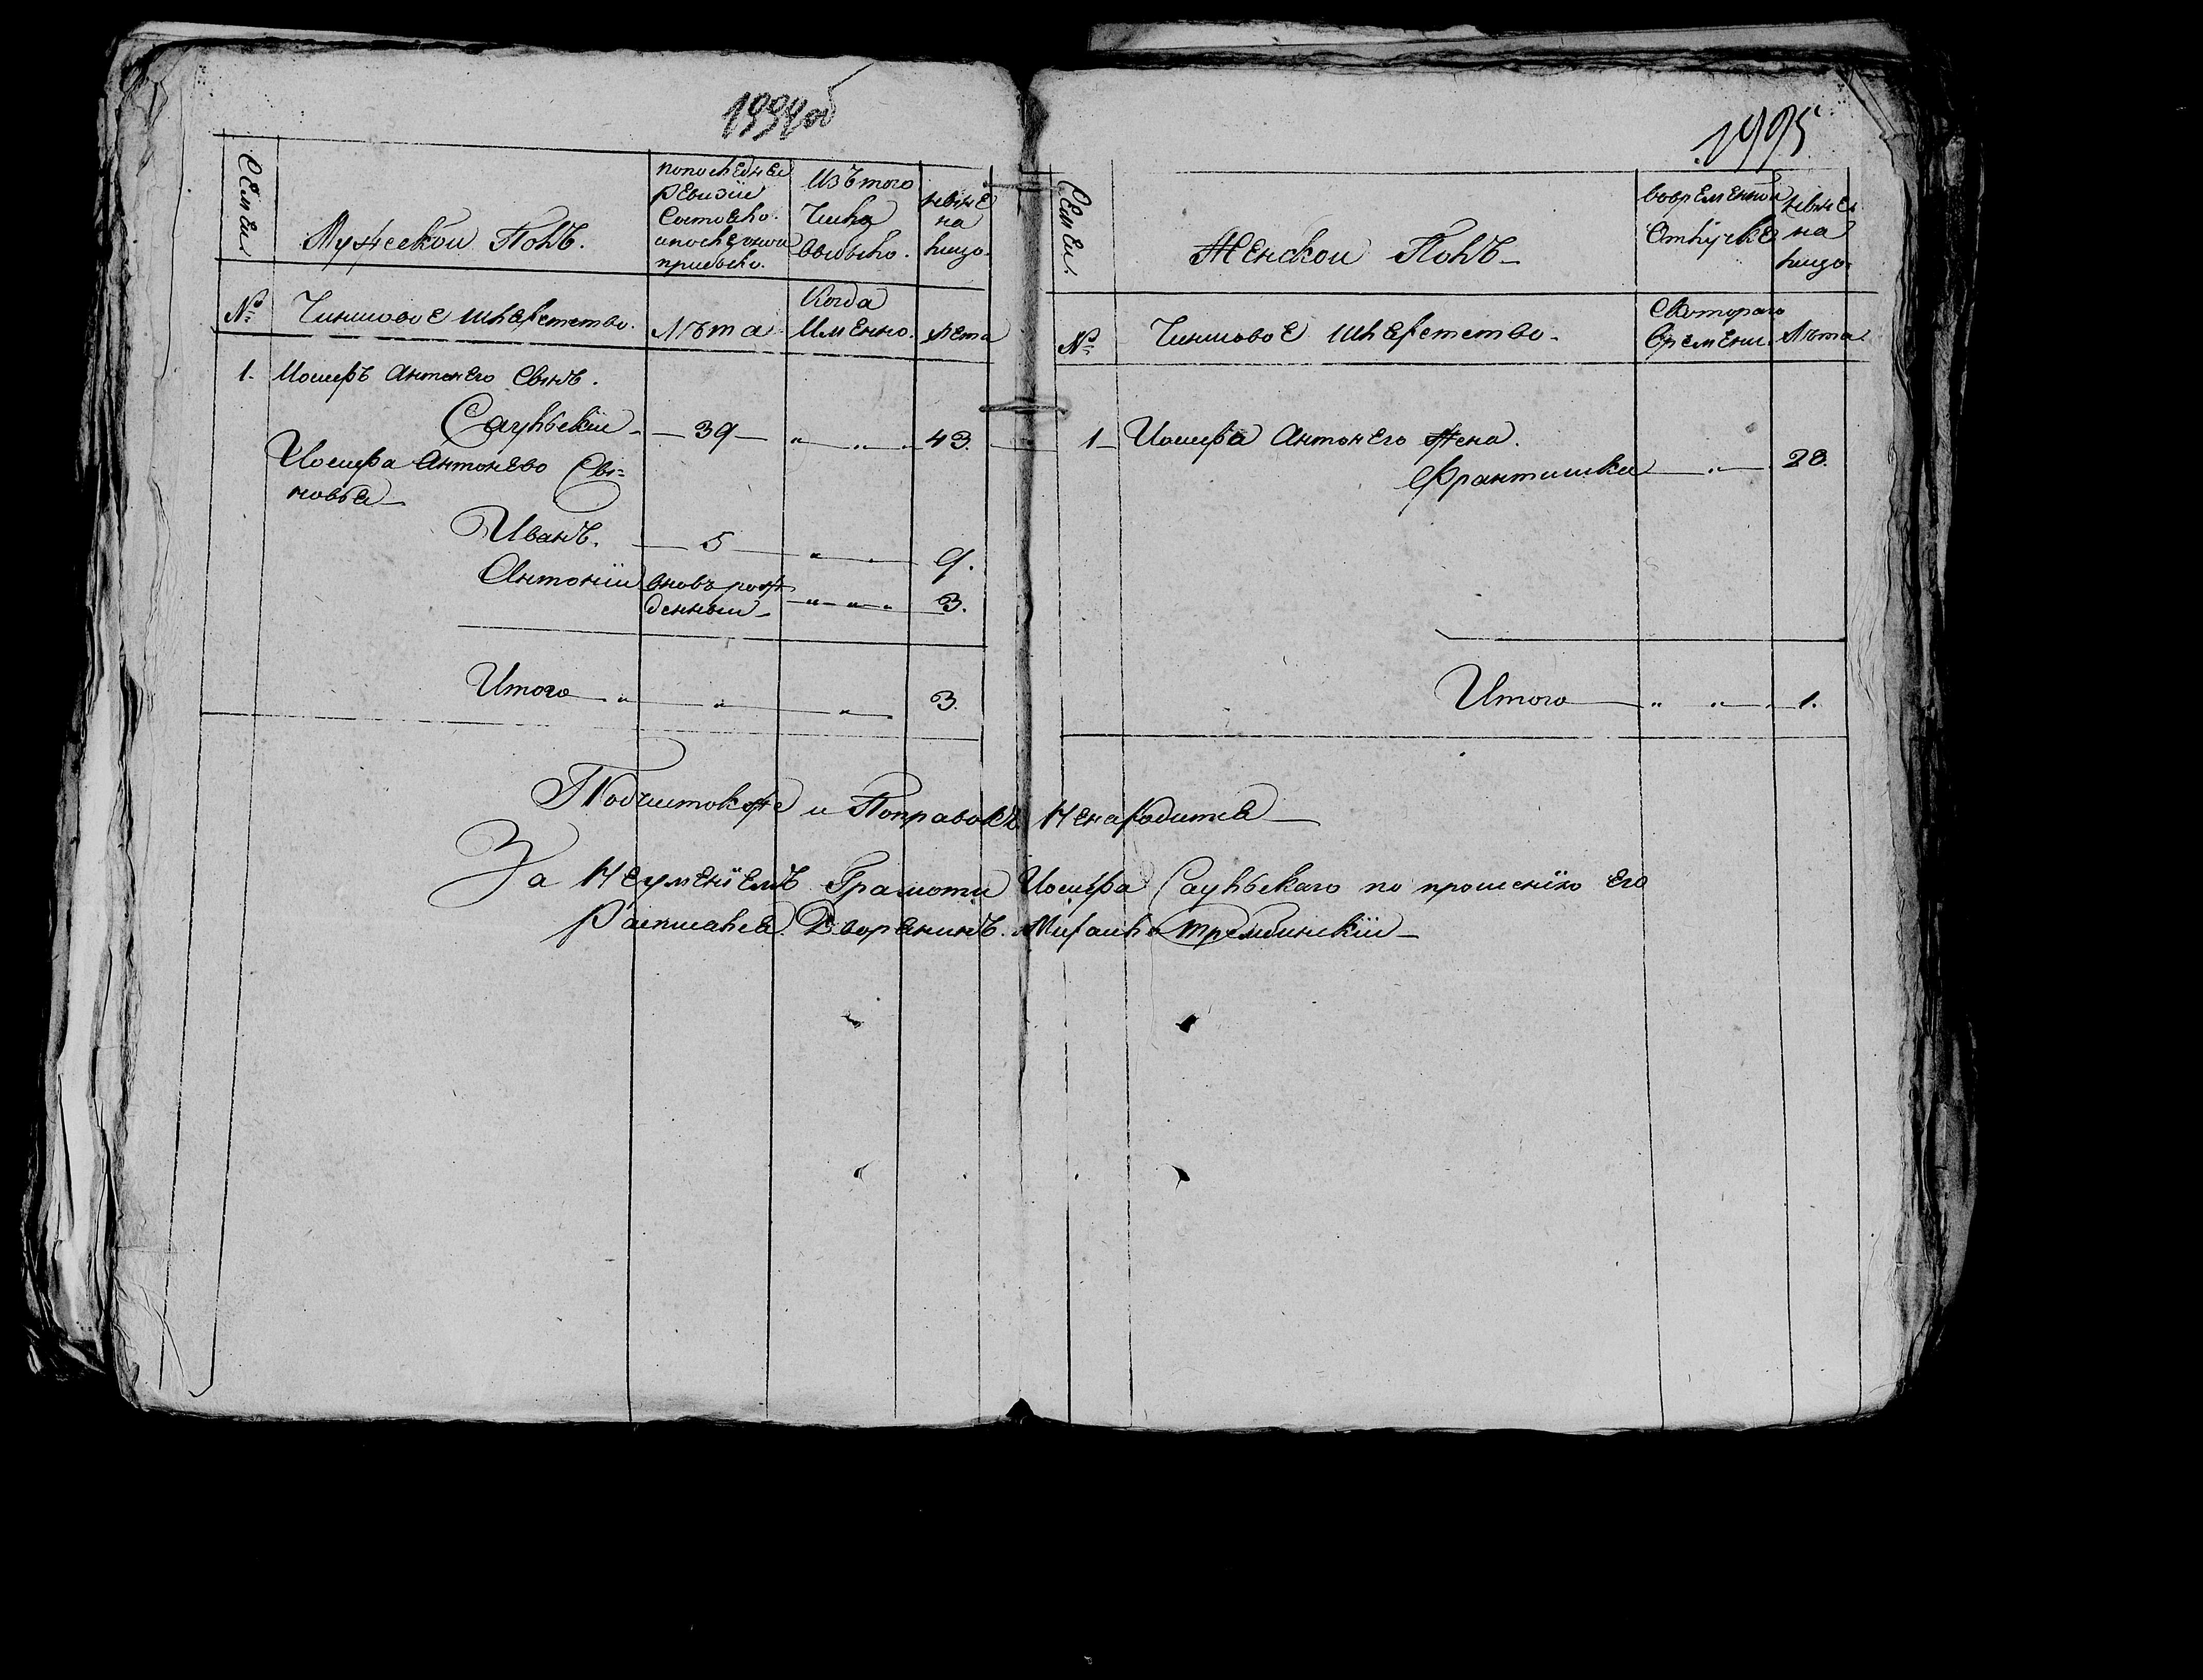 1994об
1995
Семьи
Мужескои Полъ.
попоследнеи
Ревизіи
Состояло.
ипоследнои
прибыло.
Изътого
Числа
выбыло.
ныне
на
лицо.
№
Чиншовое шляхетство.
Лѣта
Когда
Именно.
Лета
1. Иосифъ Антонего Сынъ.
Саульскіи — 39 — „ — „ . 43.
Иосифа Антонево Сы=
новья —
Иванъ. — 5 — „ — „ 9.
Антоніи вновь рож
денныи — „ „ „ 3.
Итого „ „ „ 3.
Семьи
Женскои Полъ —
вовременнои
Отлучке
ныне
на
лицо.
№
Чиншовое шляхетство.
Скотораго
Времени.
Лѣта
1 — Иосифа Антонего Жена.
Франтишка — „ — 28.
Итого — „ „ . 1.
Подчистокже и Поправокъ Ненаходится —
За Неуменіемъ Грамоти Иосифа Саульскаго по прошенію Его
Расписался. Дворянинъ. Михаило Трембинскіи —